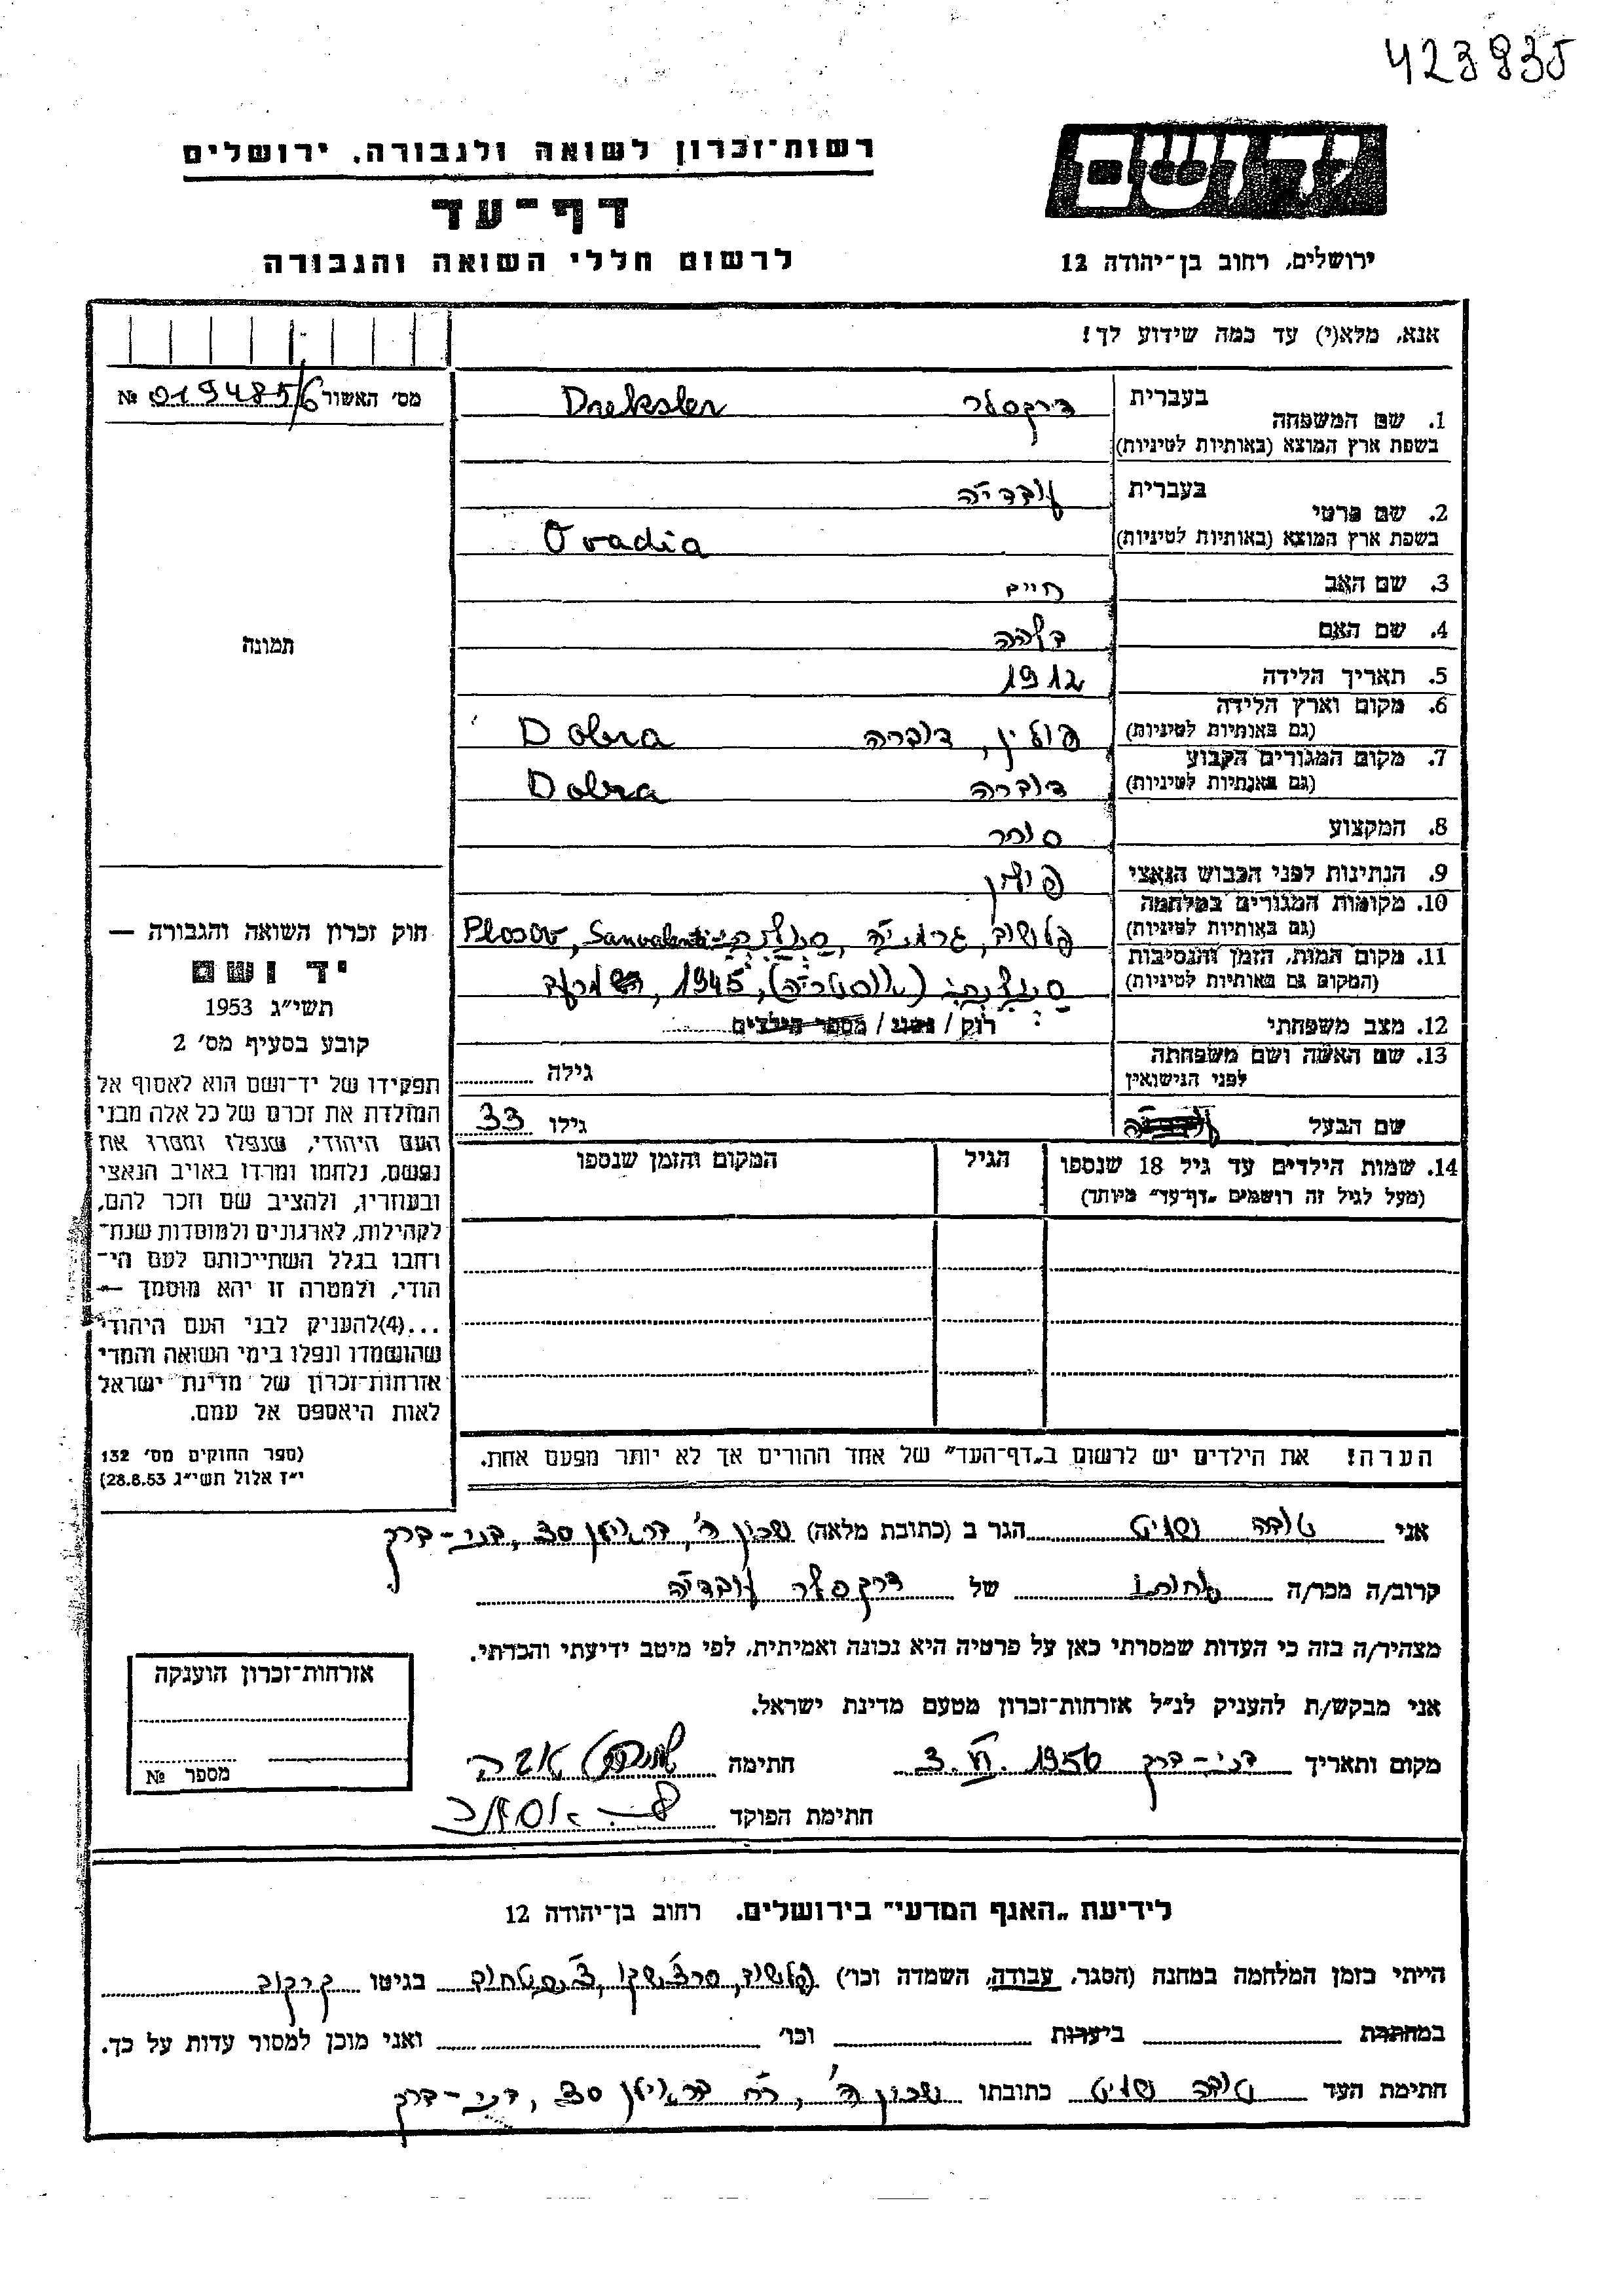 423935
רשות־זכרון לשואה ולגבורה, ירושלים
יד ושם
דף־עד
לרשום חללי השואה והגבורה
ירושלים, רחוב בן־יהודה 12
אנא, מלא(י) עד כמה שידוע לך!
מס׳ האשור 019485/6 №
1. שם המשפחה בעברית דרקסלר Dreksler
בשפת ארץ המוצא (באותיות לטיניות)
2. שם פרטי בעברית עובדיה
בשפת ארץ המוצא (באותיות לטיניות) Ovadia
3. שם האב חיים
4. שם האם
תמונה
5. תאריך הלידה 1912
6. מקום וארץ הלידה פולין, דוברה Dobra
(גם באותיות לטיניות)
7. מקום המגורים הקבוע דוברה Dobra
(גם באותיות לטיניות)
8. המקצוע סוחר
9. הנתינות לפני הכבוש הנאצי
10. מקומות המגורים במלחמה פלשוב, גרמניה,
(גם באותיות לטיניות)
11. מקום המות, הזמן והנסיבות (אוסטריה), 1945,
(המקום גם באותיות לטיניות)
12. מצב משפחתי רווק / נשוי / מספר הילדים
13. שם האשה ושם משפחתה לפני הנישואין גילה
שם הבעל גילו 33
14. שמות הילדים עד גיל 18 שנספו הגיל המקום והזמן שנספו
(מעל לגיל זה רושמים „דף־עד״ מיוחד)
חוק זכרון השואה והגבורה —
יד ושם
תשי״ג 1953
קובע בסעיף מס׳ 2
תפקידו של יד־ושם הוא לאסוף אל
המולדת את זכרם של כל אלה מבני
העם היהודי, שנפלו ומסרו את
נפשם, נלחמו ומרדו באויב הנאצי
ובעוזריו, ולהציב שם וזכר להם,
לקהילות, לארגונים ולמוסדות שנח־
רחבו בגלל השתייכותם לעם הי־
הודי, ולמטרה זו יהא מוסמך —
...(4)להעניק לבני העם היהודי
שהושמדו ונפלו בימי השואה והמרי
אזרחות־זכרון של מדינת ישראל
לאות היאספם אל עמם.
(ספר החוקים מס׳ 132
י״ז אלול תשי״ג 28.8.53)
הערה! את הילדים יש לרשום ב„דף־העד״ של אחד ההורים אך לא יותר מפעם אחת.
אני טובה הגר ב (כתובת מלאה) שכון ה׳, 30, בני-ברק
קרוב/ה מכר/ה אחותו של דרקסלר עובדיה
מצהיר/ה בזה כי העדות שמסרתי כאן על פרטיה היא נכונה ואמיתית, לפי מיטב ידיעתי והכרתי.
אני מבקש/ת להעניק לנ״ל אזרחות־זכרון מטעם מדינת ישראל.
מקום ותאריך בני-ברק 3.VI.1956 חתימה
חתימת הפוקד
אזרחות־זכרון הוענקה
מספר №
לידיעת „האגף המדעי״ בירושלים. רחוב בן־יהודה 12
הייתי בזמן המלחמה במחנה (הסגר, עבודה, השמדה וכו׳) פלשוב, בגיטו קרקוב
במחתרת ביערות וכו׳ ואני מוכן למסור עדות על כך.
חתימת העד טובה כתובתו שכון ה׳, רח׳ 30, בני-ברק